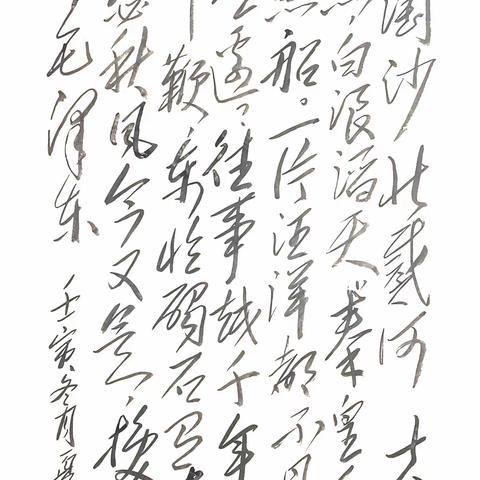 淘沙 北戴河
白浪滔天 秦皇
船。一片汪洋都不
边。往事越千年
鞭，东临碣石
瑟秋风今又是，换
毛泽东 壬寅冬月